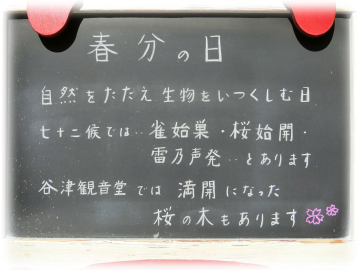 春分の日
自然をたたえ生物をいつくしむ日
七十二候では‥雀始巣・桜始開・
雷乃声発‥とあります
谷津観音堂では満開になった
桜の木もあります